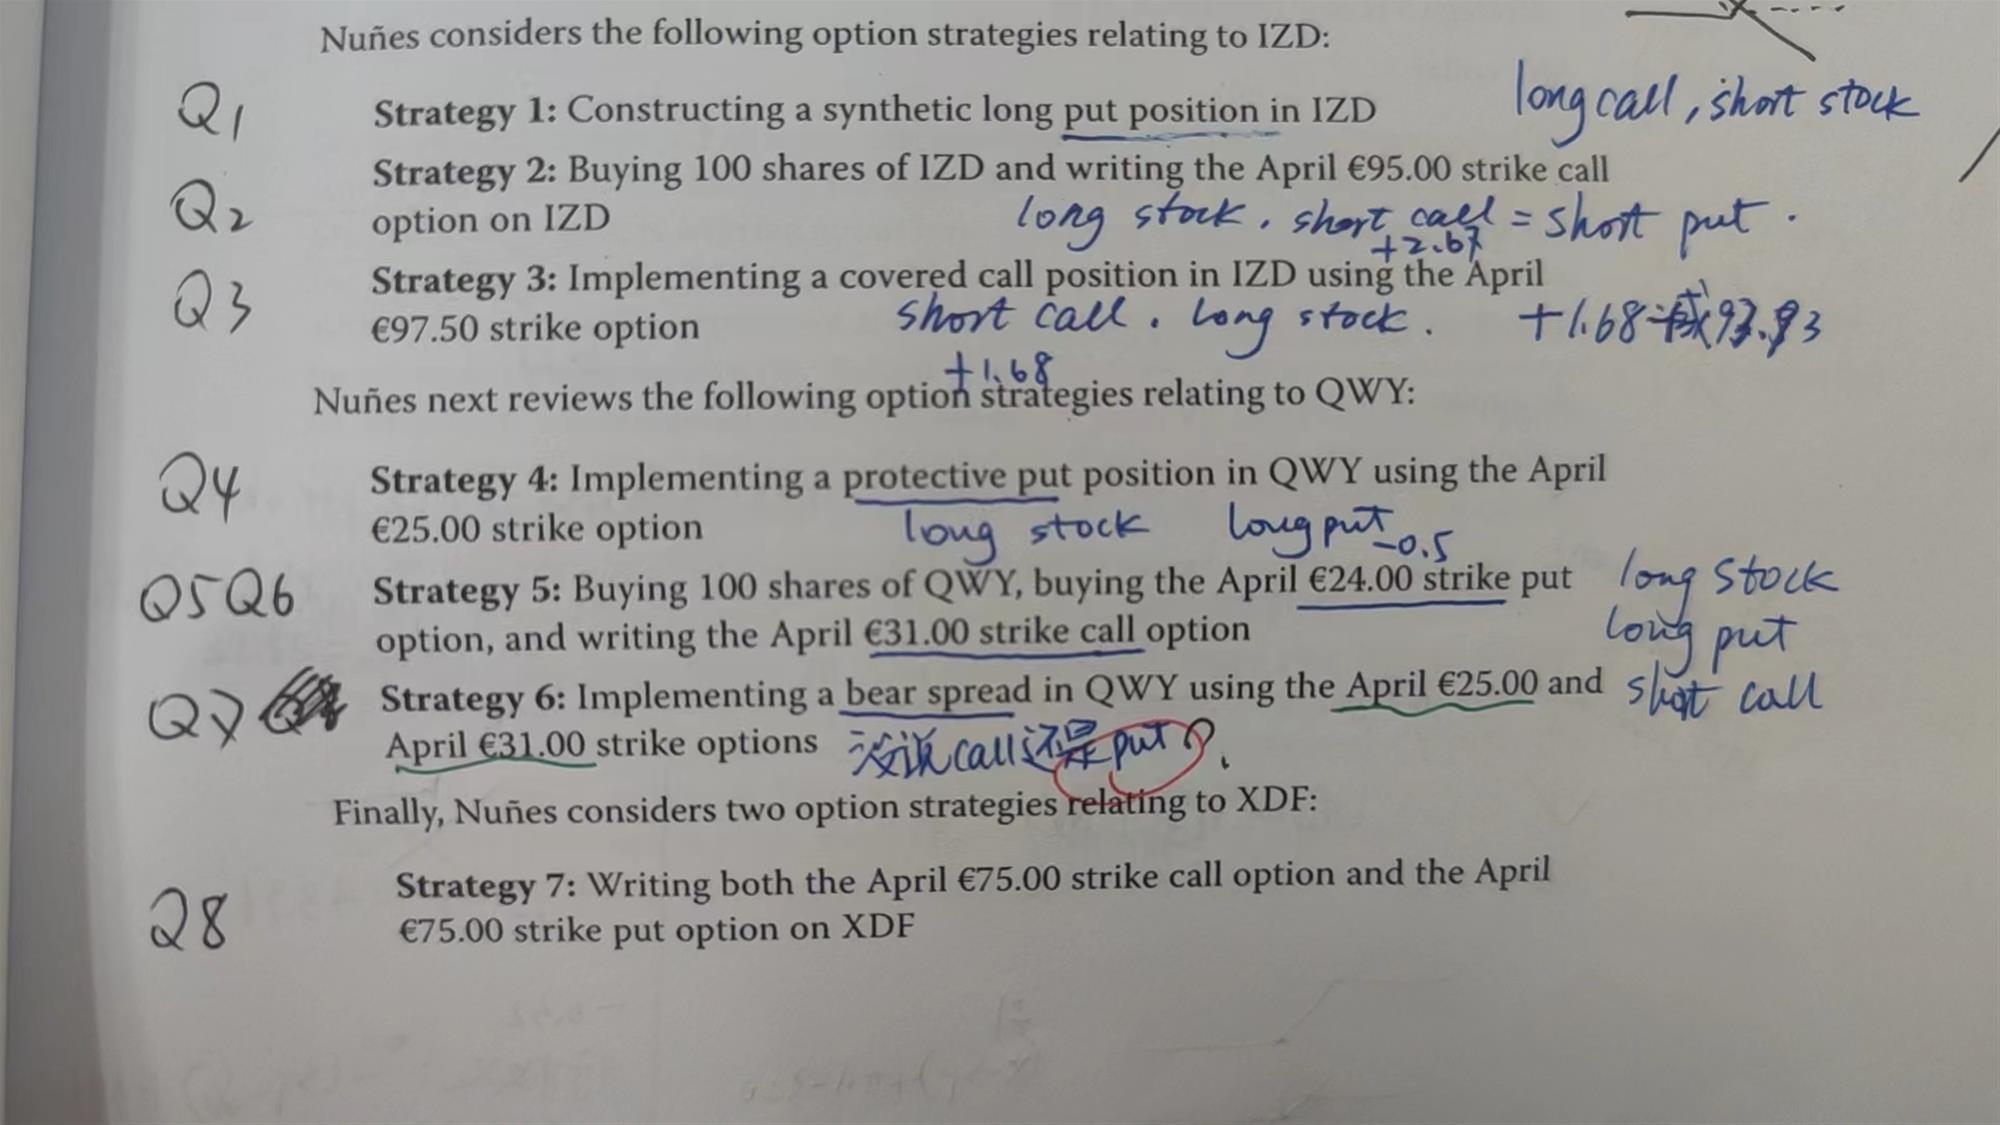 Nuñes considers the following option strategies relating to IZD:
Q1
Strategy 1: Constructing a synthetic long put position in IZD
long call, short stock
Q2
Strategy 2: Buying 100 shares of IZD and writing the April €95.00 strike call
option on IZD
long stock, short call = short put.
+2.67
Q3
Strategy 3: Implementing a covered call position in IZD using the April
€97.50 strike option
short call. long stock.
+1.68减93.93
+1.68
Nuñes next reviews the following option strategies relating to QWY:
Q4
Strategy 4: Implementing a protective put position in QWY using the April
€25.00 strike option
long stock long put
-0.5
Q5 Q6
Strategy 5: Buying 100 shares of QWY, buying the April €24.00 strike put
option, and writing the April €31.00 strike call option
long stock
long put
short call
Q7
Strategy 6: Implementing a bear spread in QWY using the April €25.00 and
April €31.00 strike options
没说call还是put?
Finally, Nuñes considers two option strategies relating to XDF:
Q8
Strategy 7: Writing both the April €75.00 strike call option and the April
€75.00 strike put option on XDF